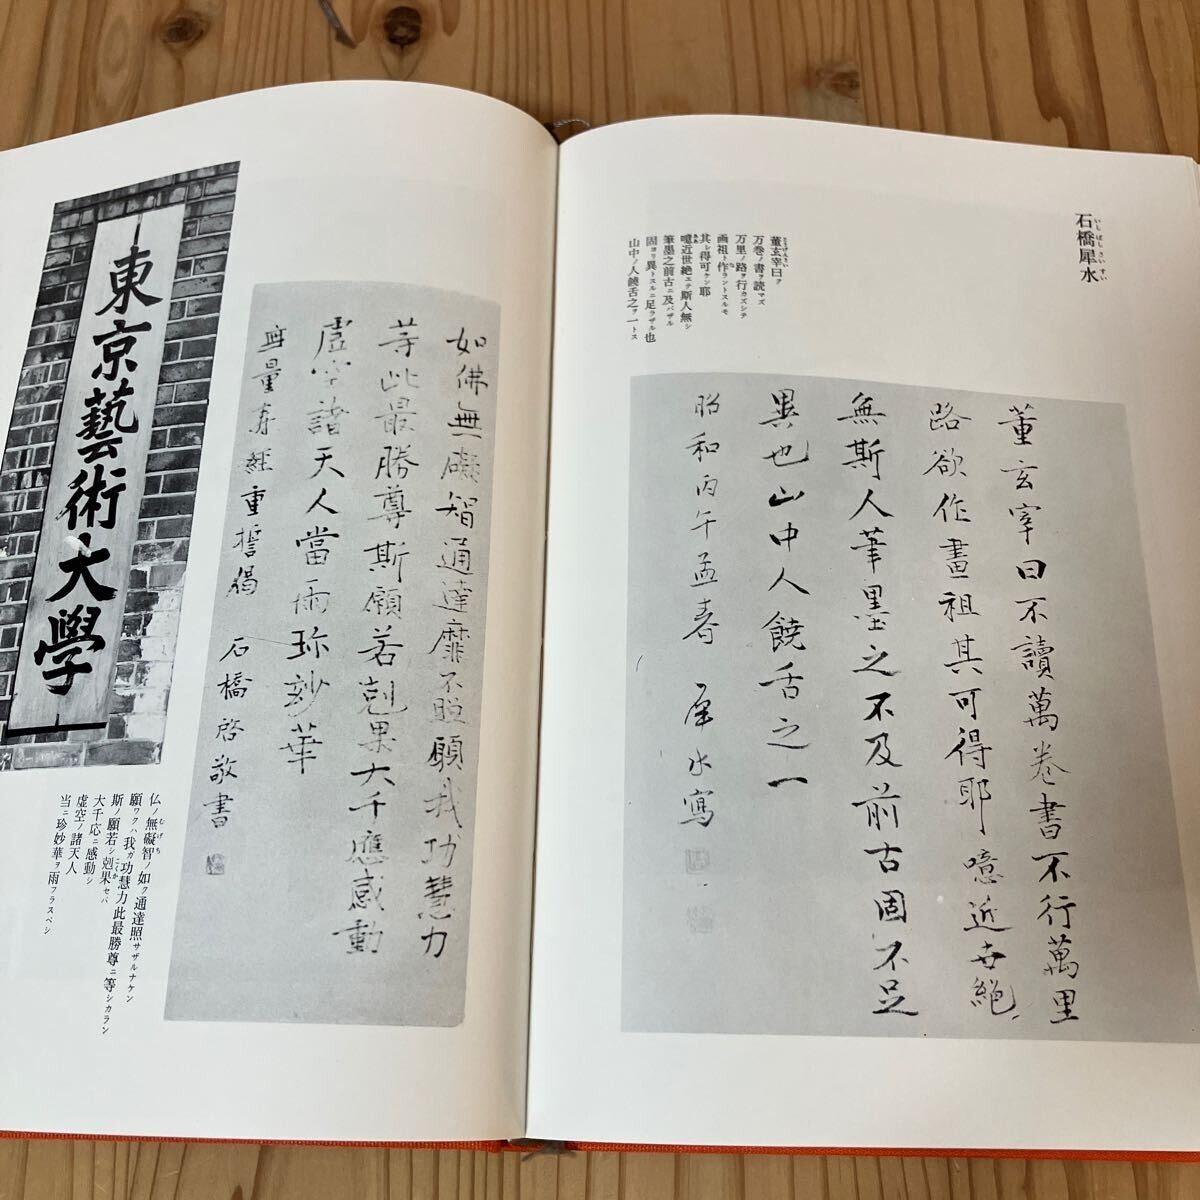 石橋犀水
いしばしさいすい
董玄宰曰ク
万巻ノ書ヲ読マズ
万里ノ路ヲ行カズシテ
画祖ト作ラントスルモ
其レ得可ケン耶
噫近世絶エテ斯人無シ
筆墨之前古ニ及バザル
固ヨリ異トスルニ足ラザル也
山中ノ人饒舌之ヲ一トス
董玄宰曰不讀萬卷書不行萬里
路欲作畫祖其可得耶噫近世絶
無斯人筆墨之不及前古固不足
異也山中人饒舌之一
昭和丙午孟春 犀水寫
如佛無礙智通達靡不照願我功慧力
等此最勝尊斯願若剋果大千應感動
虚空諸天人當雨珎妙華
無量寿経重誓偈 石橋啓敬書
東京藝術大學
仏ノ無礙智ノ如ク通達照サザルナケン
願ワクハ我ガ功慧力此最勝尊ニ等シカラン
斯ノ願若シ剋果セバ
大千応ニ感動シ
虚空ノ諸天人
当ニ珍妙華ヲ雨フラスベシ